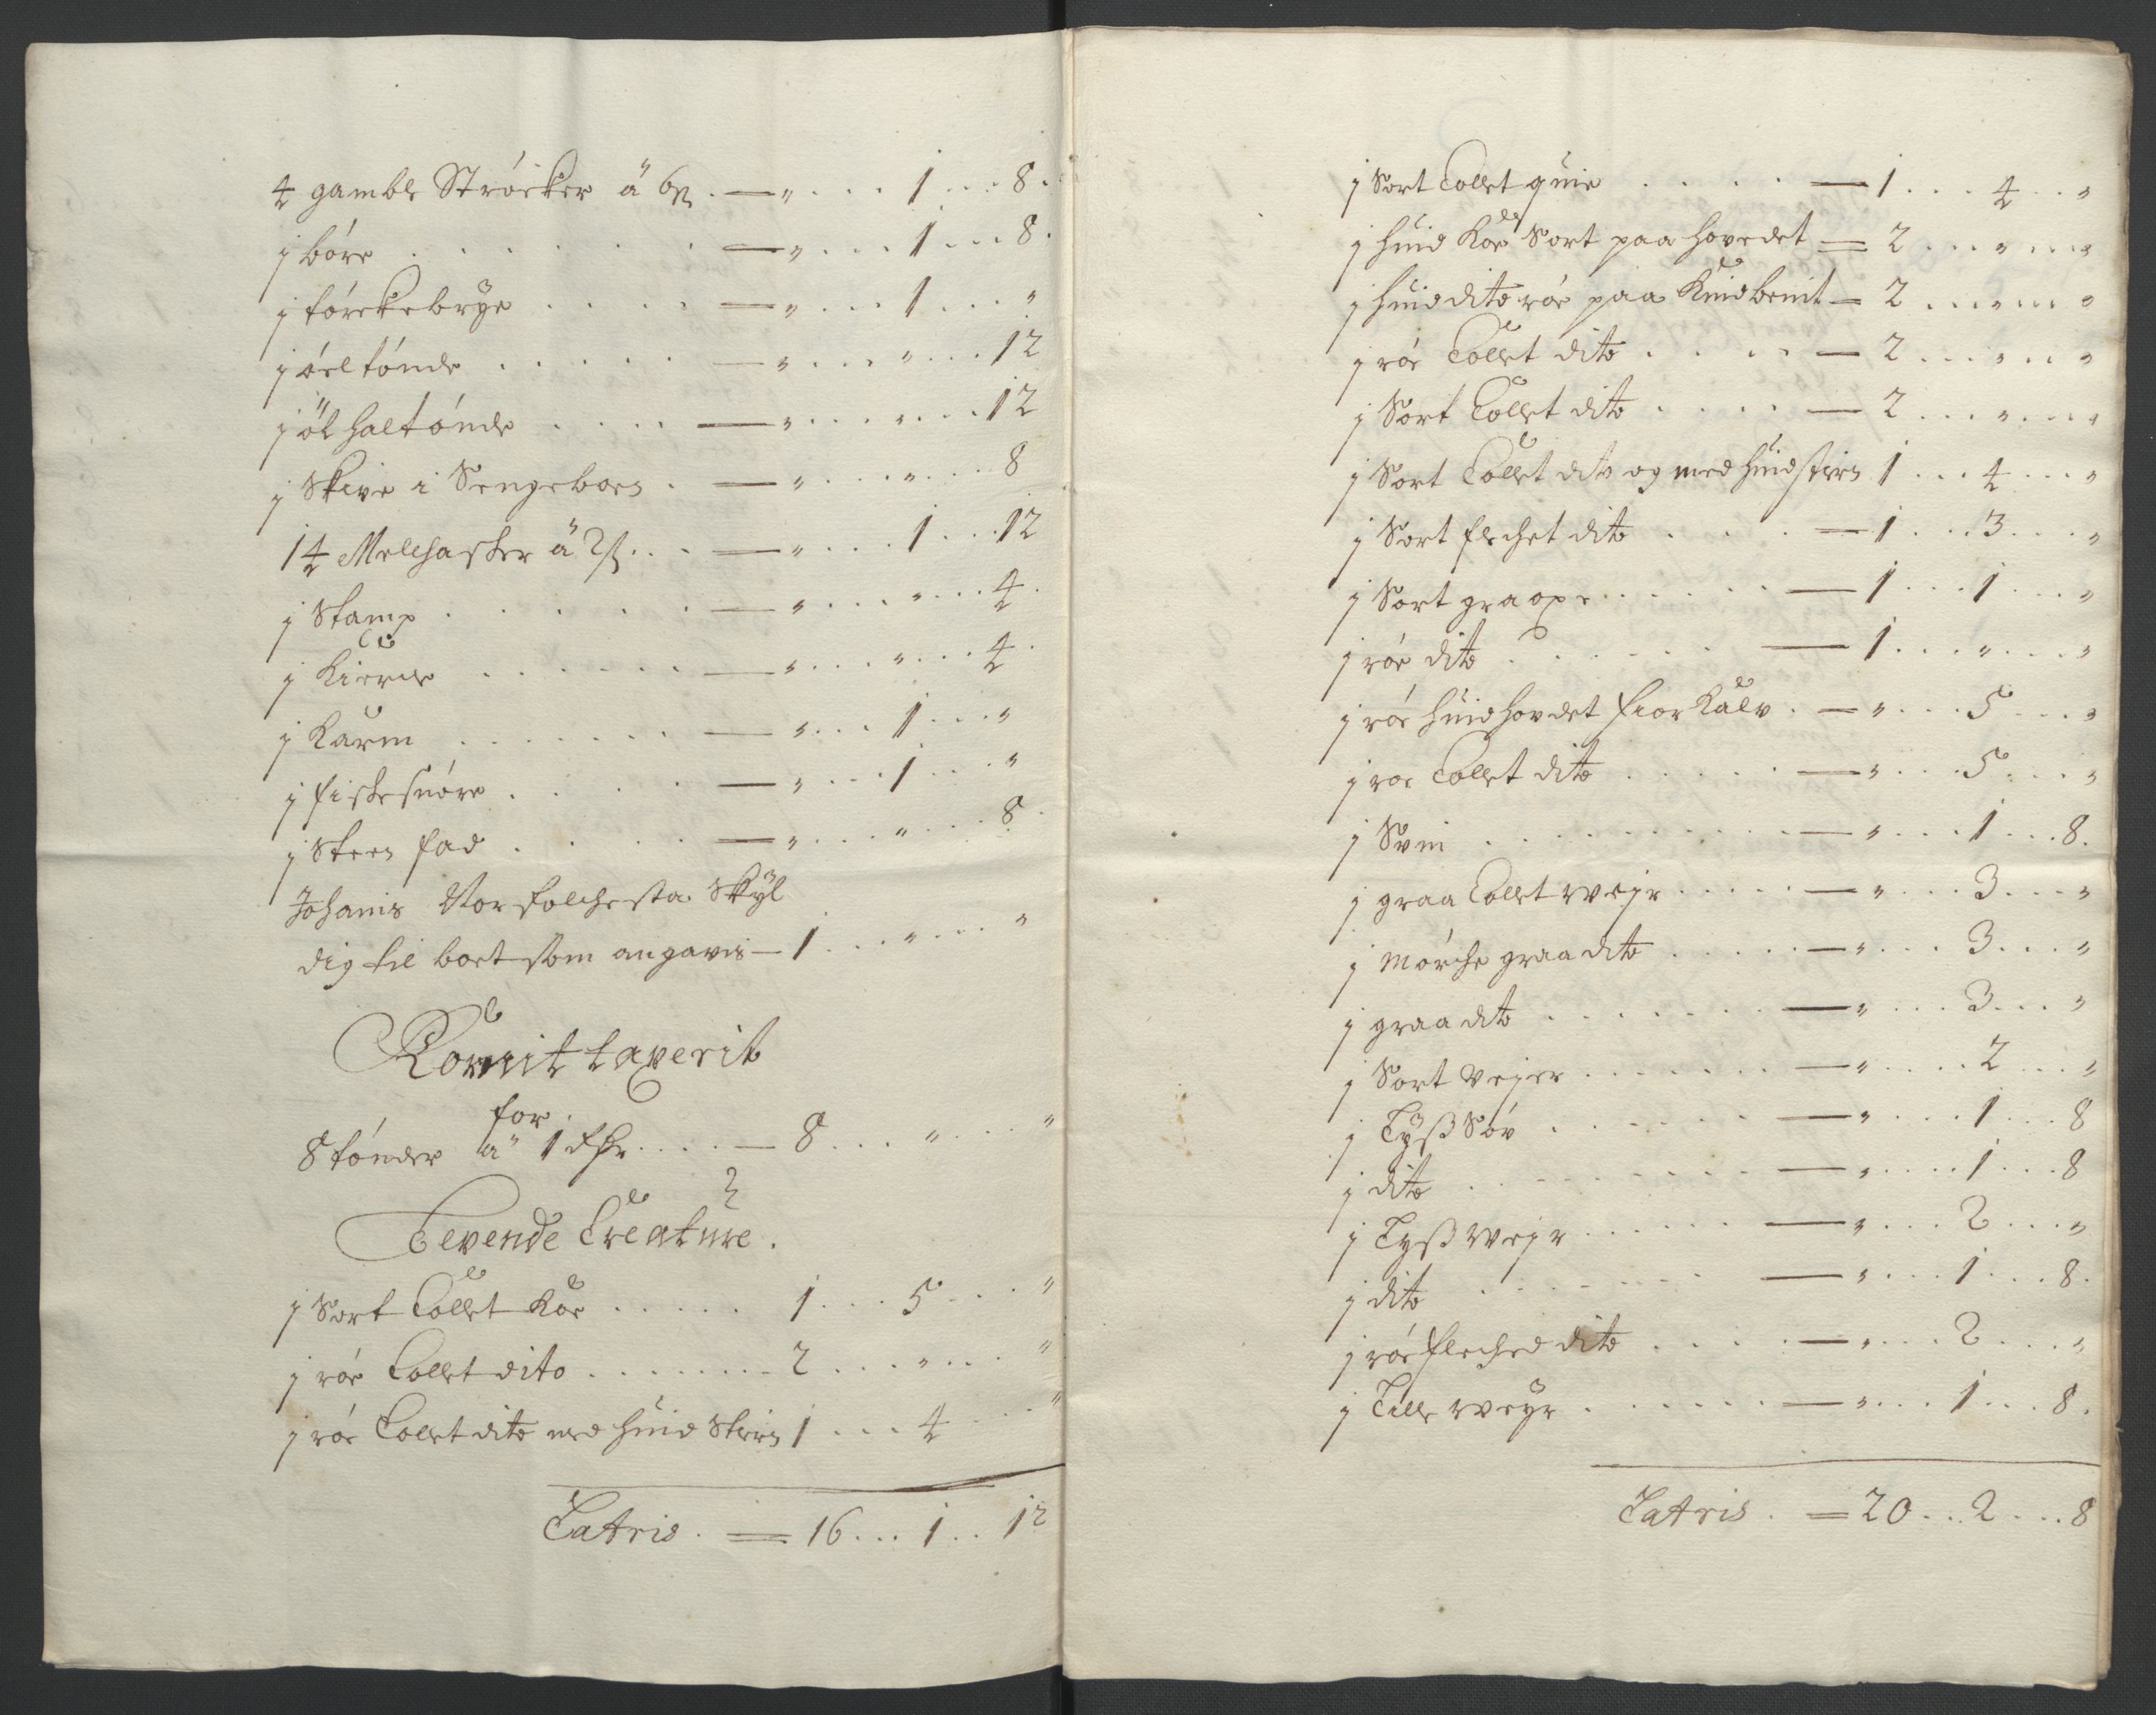 4 gamble Strócker á 6 ß. — " . . . 1 . . . 8 .
j bóre . . . . . . — " . . . 1 . . . 8 .
j tórckebrye . . . . — " . . . 1 . . . "
j óeltónde . . . . . — " . . . " . . . 12
j öl haltónde . . . . — " . . . " . . . 12
j Skive i Sengeboen . — " . . . " . . . 8
14 Melchasker á 2 ß . . . — " . . . 1 . . . 12
j Stamp . . . . . . — " . . . " . . . 4 .
j Kierne . . . . . . — " . . . " . . . 4 .
j Karm . . . . . . . — " . . . 1 . . . "
j fiskesnóre . . . . . — " . . . 1 . . . "
j Steen fad . . . . . — " . . . " . . . 8 .
Johanis Skyl
dig til boet som angaves — 1 . . . " . . . "
Kornit taxerit
for
8 tónder á 1 dlr . . . . — 8 . . . " . . . "
Levende Creature .
j Sort Collet Koe . . . . . 1 . . . 5 . . . "
j róe Collet dito . . . . . . . 2 . . . " . . . "
j róe Collet dito med huid Stiern 1 . . . 4 . . . "
Latris . = 16 . . . 1 . . 12
j Sort Collet quie . . . . — 1 . . . 4 . . "
j huid Koe Sort paa hovedet = 2 . . . " . . . "
j huid dito róe paa Knid benit = 2 . . . " . . . "
j róe Collet dito . . . . — 2 . . . " . . . "
j Sort Collet dito . . . . — 2 . . . " . . . "
j Sort Collet dito og med huid stiern 1 . . . 4 . . . "
j Sort flechet dito . . . . — 1 . . . 3 . . . "
j Sort graoxe . . . . . . — 1 . . . 1 . . . "
j róe dito . . . . . . — 1 . . . " . . . "
j róe huidhovdet fior Kalv . — " . . . 5 . . . "
j roe Collet dito . . . . . — " . . . 5 . . . "
j Svin . . . . . . . . . . — " . . . 1 . . . 8 .
j graa Collet wejr . . . . . — " . . . 3 . . . "
j mórche graa dito . . . . . — " . . . 3 . . . "
j graa dito . . . . . . . — " . . . 3 . . . "
j Sort Vejer . . . . . . . — " . . . . 2 . . . "
j Tyß Sóv . . . . . . — " . . . 1 . . . 8
j dito . . . . . . . . . — " . . . . 1 . . . 8
j Tyß wejr . . . . . . — " . . . 2 . . . "
j dito . . . . . . . — " . . . 1 . . . 8 .
j róe fleched dito . . . . . — " . . . 2 . . . "
j Lille weyr . . . . . . . — " . . . 1 . . . 8 .
Latris . = 20 . . 2 . . . 8